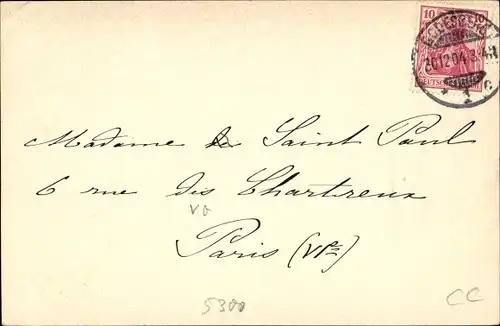 10
20.12.04. 3-4N
1 c
Madame de Saint Paul
6 rue des Chartreux
vo
Paris (VIe)
5300
CC